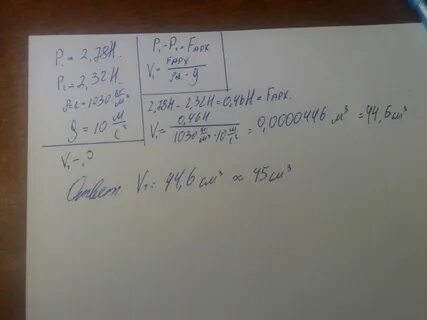 P₁ = 2,78Н
P₂ = 2,32Н
ρж = 1030 кг/м³
g = 10 м/с²
V₁ - ?
P₁ - P₂ = Fарх
V₁ = Fарх / ρж · g
2,78Н - 2,32Н = 0,46Н = Fарх.
V₁ = 0,46Н / 1030 кг/м³ · 10 м/с² = 0,0000446 м³ = 44,6 см³
Ответ: V₁ = 44,6 см³ ≈ 45 см³